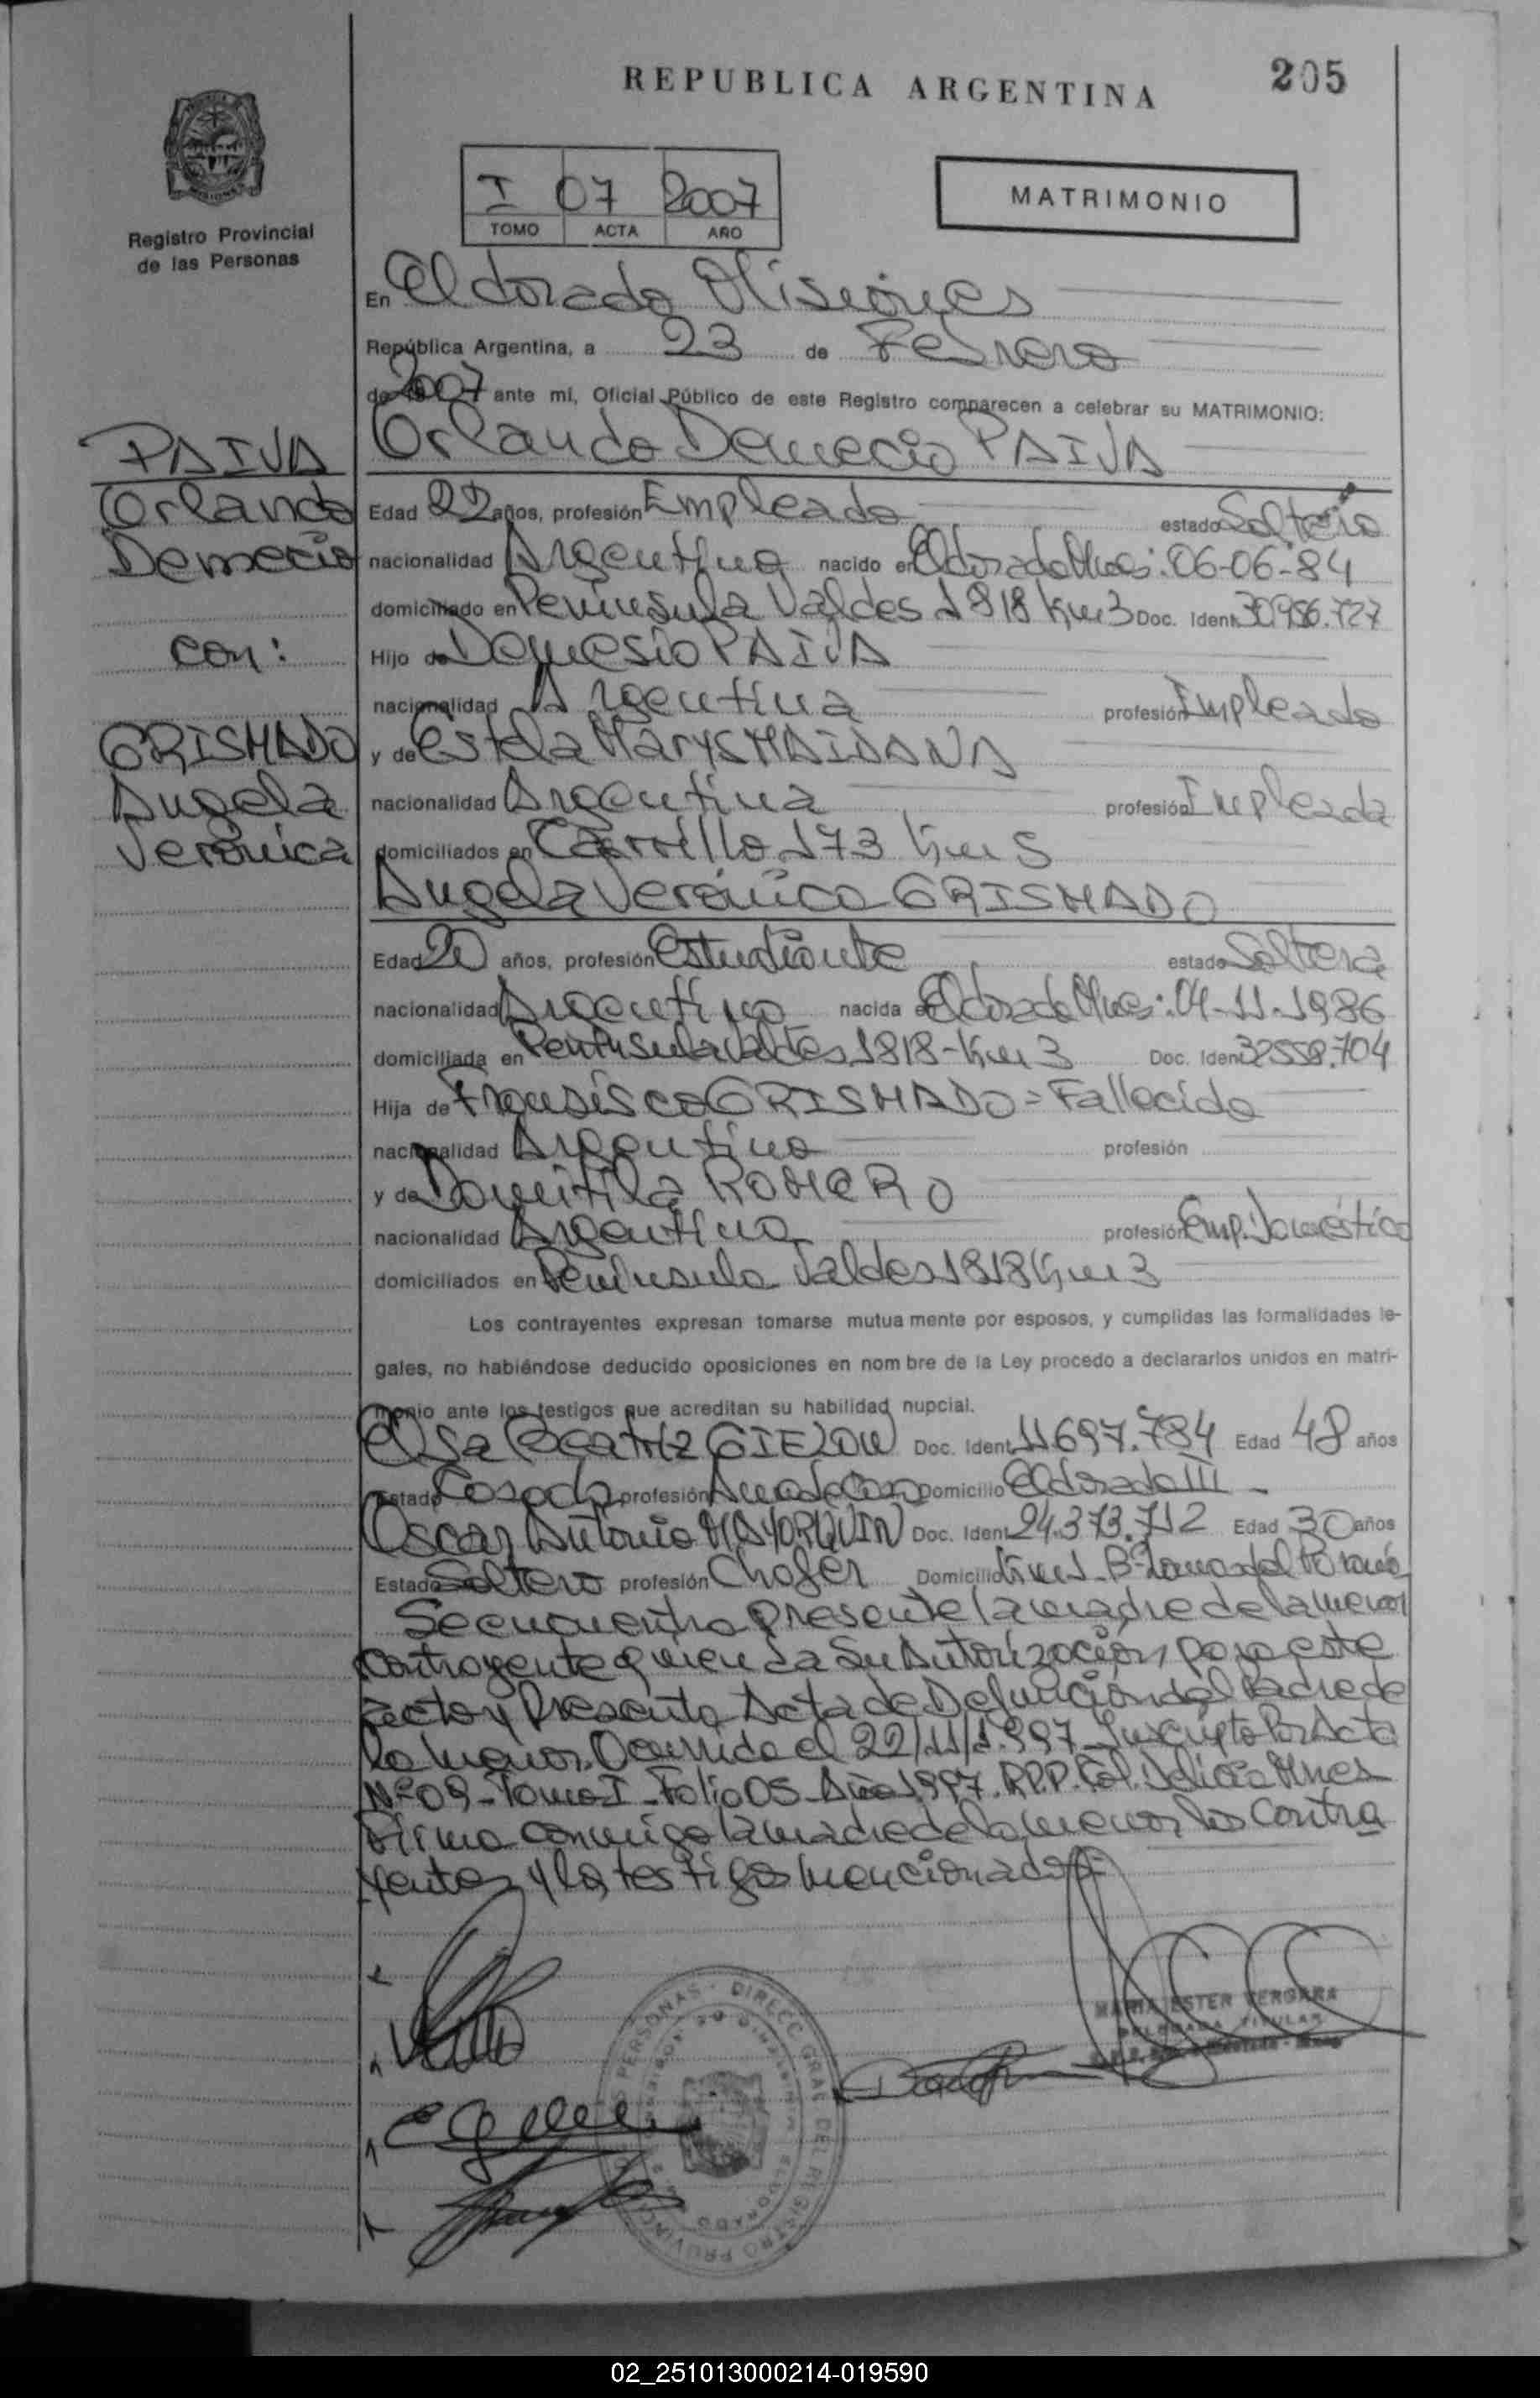 REPUBLICA ARGENTINA
205
Registro Provincial
de las Personas
I 07 2007
TOMO ACTA AÑO
MATRIMONIO
En Eldorado Misiones
República Argentina, a 23 de Febrero
de 2007 ante mí, Oficial Público de este Registro comparecen a celebrar su MATRIMONIO:
PAIVA
Orlando
Demecio
con:
GRISMADO
Angela
Verónica
Orlando Demecio PAIVA
Edad 22 años, profesión Empleado estado Soltero
nacionalidad Argentina nacido en Eldorado Mnes: 06-06-84
domiciliado en Península Valdes 1818 Km 3 Doc. Ident. 30956.727
Hijo de Demesio PAIVA
nacionalidad Argentina profesión Empleado
y de Estela Marys MAIDANA
nacionalidad Argentina profesión Empleada
domiciliados en Carrillo 173 Km 5
Angela Verónica GRISMADO
Edad 20 años, profesión Estudiante estado Soltera
nacionalidad Argentina nacida en Eldorado Mnes: 04-11-1986
domiciliada en Península Valdes 1818-Km 3 Doc. Ident. 32558.704
Hija de Fransisco GRISMADO = Fallecido
nacionalidad Argentino profesión
y de Domitila ROMERO
nacionalidad Argentina profesión Emp. Doméstica
domiciliados en Península Valdes 1818 Km 3
Los contrayentes expresan tomarse mutua mente por esposos, y cumplidas las formalidades le-
gales, no habiéndose deducido oposiciones en nom bre de la Ley procedo a declararlos unidos en matri-
monio ante los testigos que acreditan su habilidad nupcial.
Elsa Beatriz GIELOW Doc. Ident. 11697.784 Edad 48 años
Estado Casada profesión Ama de Casa Domicilio Eldorado III
Oscar Antonio MAYORQUIN Doc. Ident. 24.373.712 Edad 30 años
Estado Soltero profesión Chofer Domicilio Km 1 Bº del Paraná
Se encuentra presente la madre de la menor
contrayente quien da Su Autorización para este
acto y Presenta Acta de Defunción del Padre de
la menor. Ocurrida el 22/11/1.997 Inscripto Por Acta
Nº 09-Tomo I-Folio 05-Año 1997. R.P.P. Col. Delicia Mnes
Firma conmigo la madre de la menor los contra
yentes y los testigos mencionados
MARIA ESTER VERGARA
DELEGADA TITULAR
DIRECC. GRAL. DEL REGISTRO PROVINCIAL DE LAS PERSONAS
ELDORADO
02_251013000214-019590